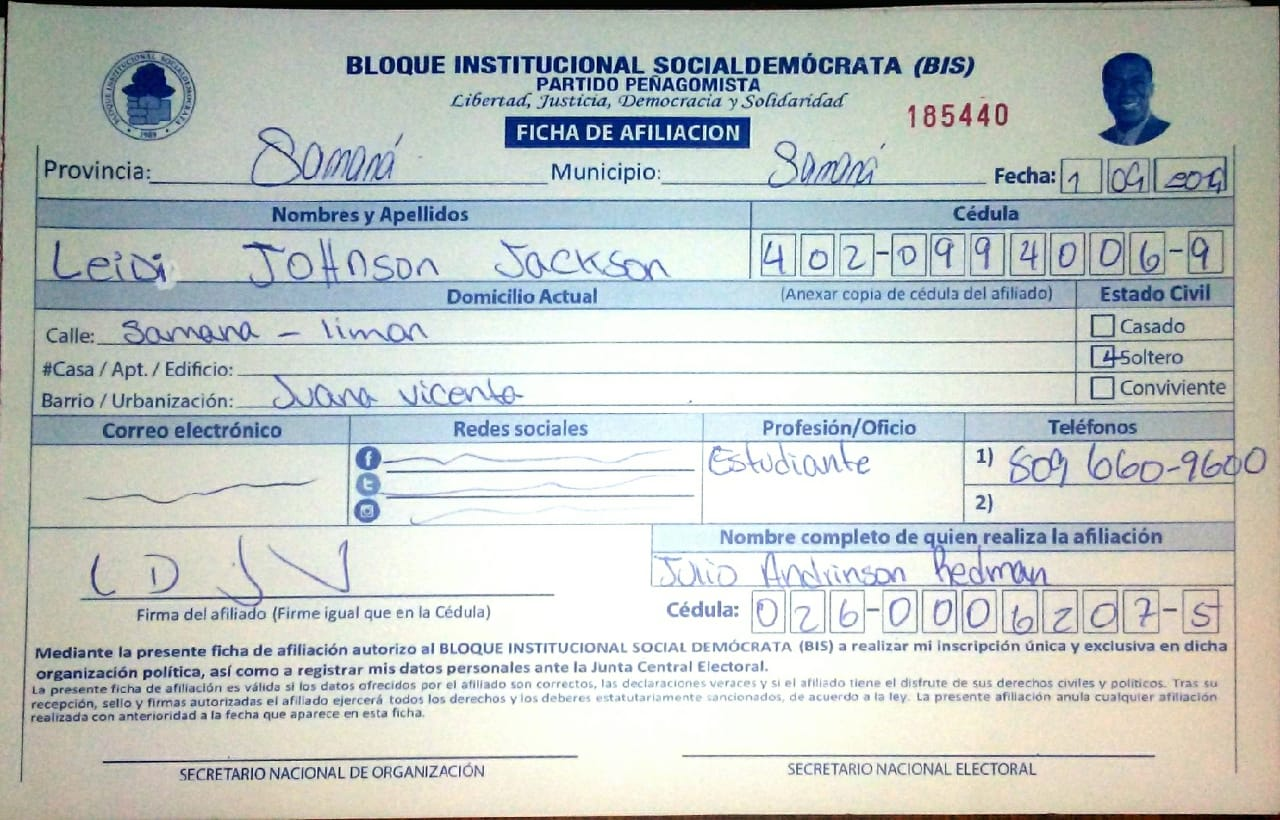 BLOQUE INSTITUCIONAL SOCIALDEMÓCRATA (BIS)
PARTIDO PEÑAGOMISTA
Libertad, Justicia, Democracia y Solidaridad
185440
FICHA DE AFILIACION
Provincia: Samaná Municipio: Samaná Fecha: 1 09 2019
Nombres y Apellidos Cédula
Leidi Johnson Jackson 402-0994006-9
Domicilio Actual (Anexar copia de cédula del afiliado) Estado Civil
Calle: Samana - limon Casado
#Casa / Apt. / Edificio: Soltero
Barrio / Urbanización: Juana vicenta Conviviente
Correo electrónico Redes sociales Profesión/Oficio Teléfonos
Estudiante 1) 809 660-9600
2)
Nombre completo de quien realiza la afiliación
LDJV Julio Andrinson Redman
Firma del afiliado (Firme igual que en la Cédula) Cédula: 026-0006207-5
Mediante la presente ficha de afiliación autorizo al BLOQUE INSTITUCIONAL SOCIAL DEMÓCRATA (BIS) a realizar mi inscripción única y exclusiva en dicha
organización política, así como a registrar mis datos personales ante la Junta Central Electoral.
La presente ficha de afiliación es válida si los datos ofrecidos por el afiliado son correctos, las declaraciones veraces y si el afiliado tiene el disfrute de sus derechos civiles y políticos. Tras su
recepción, sello y firmas autorizadas el afiliado ejercerá todos los derechos y los deberes estatutariamente sancionados, de acuerdo a la ley. La presente afiliación anula cualquier afiliación
realizada con anterioridad a la fecha que aparece en esta ficha.
SECRETARIO NACIONAL DE ORGANIZACIÓN SECRETARIO NACIONAL ELECTORAL